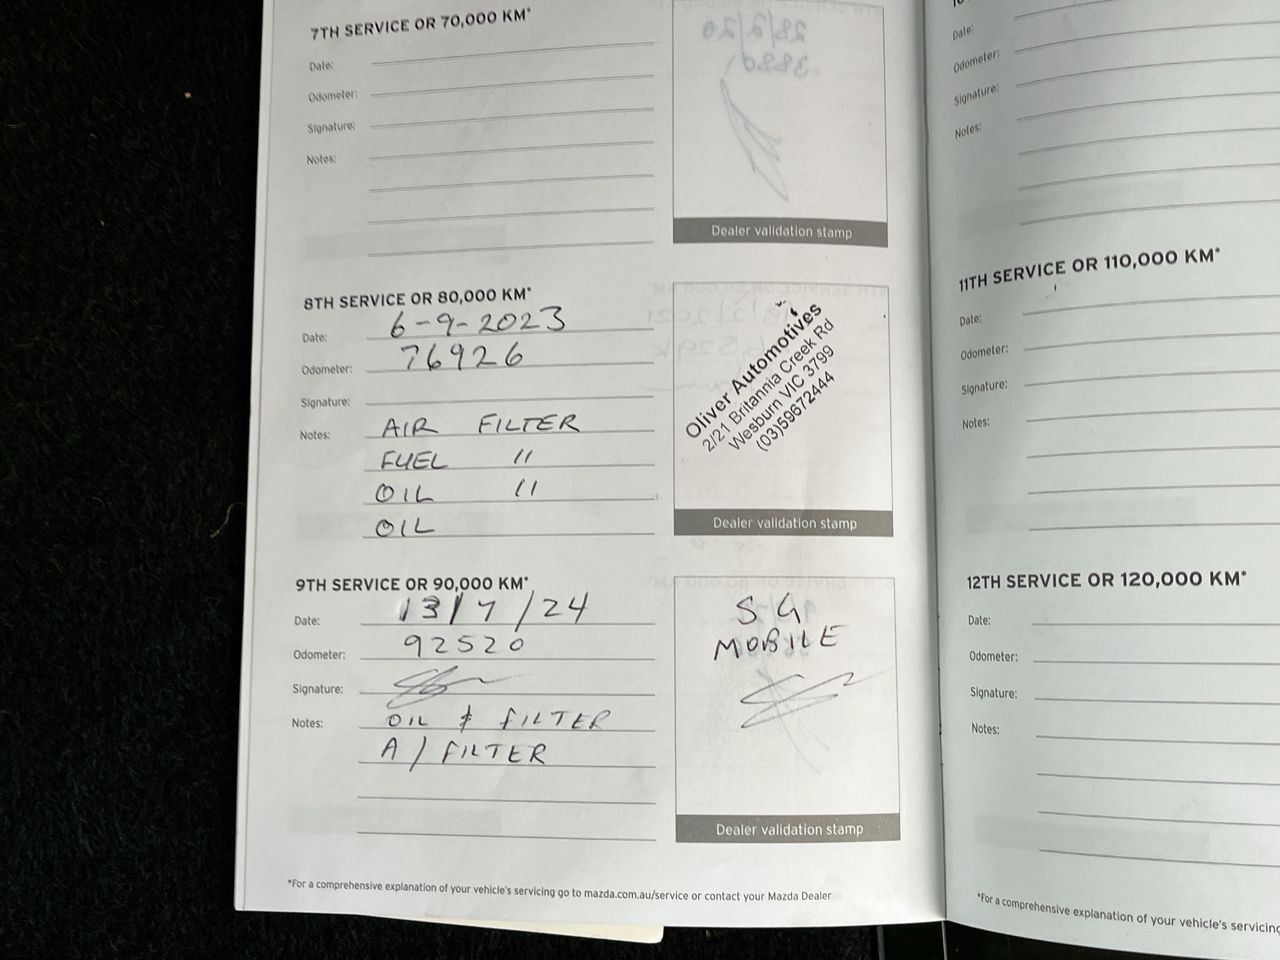 7TH SERVICE OR 70,000 KM*
Date:
Odometer:
Signature:
Notes:
Dealer validation stamp
8TH SERVICE OR 80,000 KM*
Date: 6-9-2023
Odometer: 76926
Signature:
Notes: AIR FILTER
FUEL "
OIL "
OIL
Oliver Automotives
2/21 Britannia Creek Rd
Wesburn VIC 3799
(03)59672444
Dealer validation stamp
9TH SERVICE OR 90,000 KM*
Date: 13/7/24
Odometer: 92520
Signature:
Notes: OIL & FILTER
A/FILTER
SG
MOBILE
Dealer validation stamp
*For a comprehensive explanation of your vehicle's servicing go to mazda.com.au/service or contact your Mazda Dealer
Date:
Odometer:
Signature:
Notes:
11TH SERVICE OR 110,000 KM*
Date:
Odometer:
Signature:
Notes:
12TH SERVICE OR 120,000 KM*
Date:
Odometer:
Signature:
Notes:
*For a comprehensive explanation of your vehicle's servicing